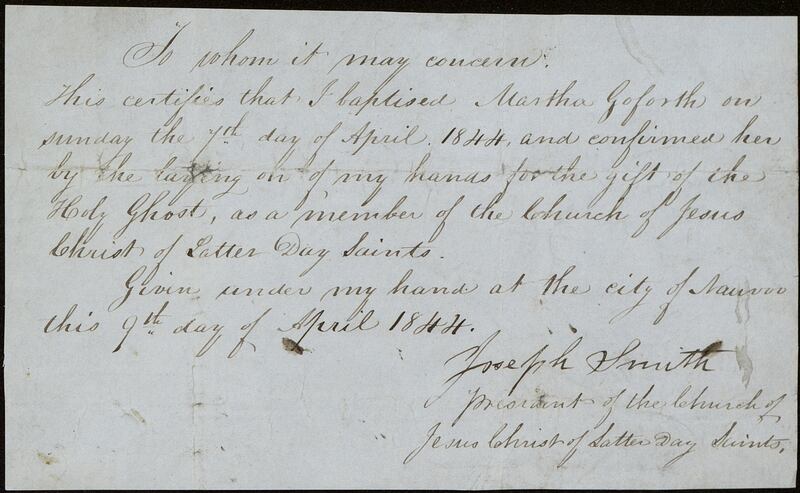 To whom it may concern.
This certifies that I baptised Martha Goforth on
sunday the 7th day of April. 1844, and confirmed her
by the laying on of my hands for the gift of the
Holy Ghost, as a member of the Church of Jesus
Christ of Latter Day Saints.
Givin under my hand at the city of Nauvoo
this 9th day of April 1844.
Joseph Smith
president of the Church of
Jesus Christ of Latter Day Saints,